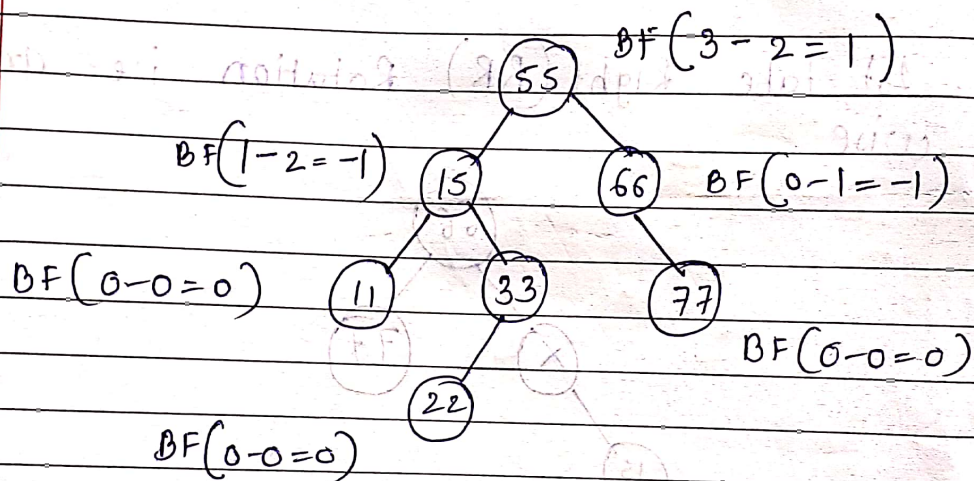 BF(3-2=1)
55
BF(1-2=-1)
15
66
BF(0-1=-1)
BF(0-0=0)
11
33
77
BF(0-0=0)
22
BF(0-0=0)